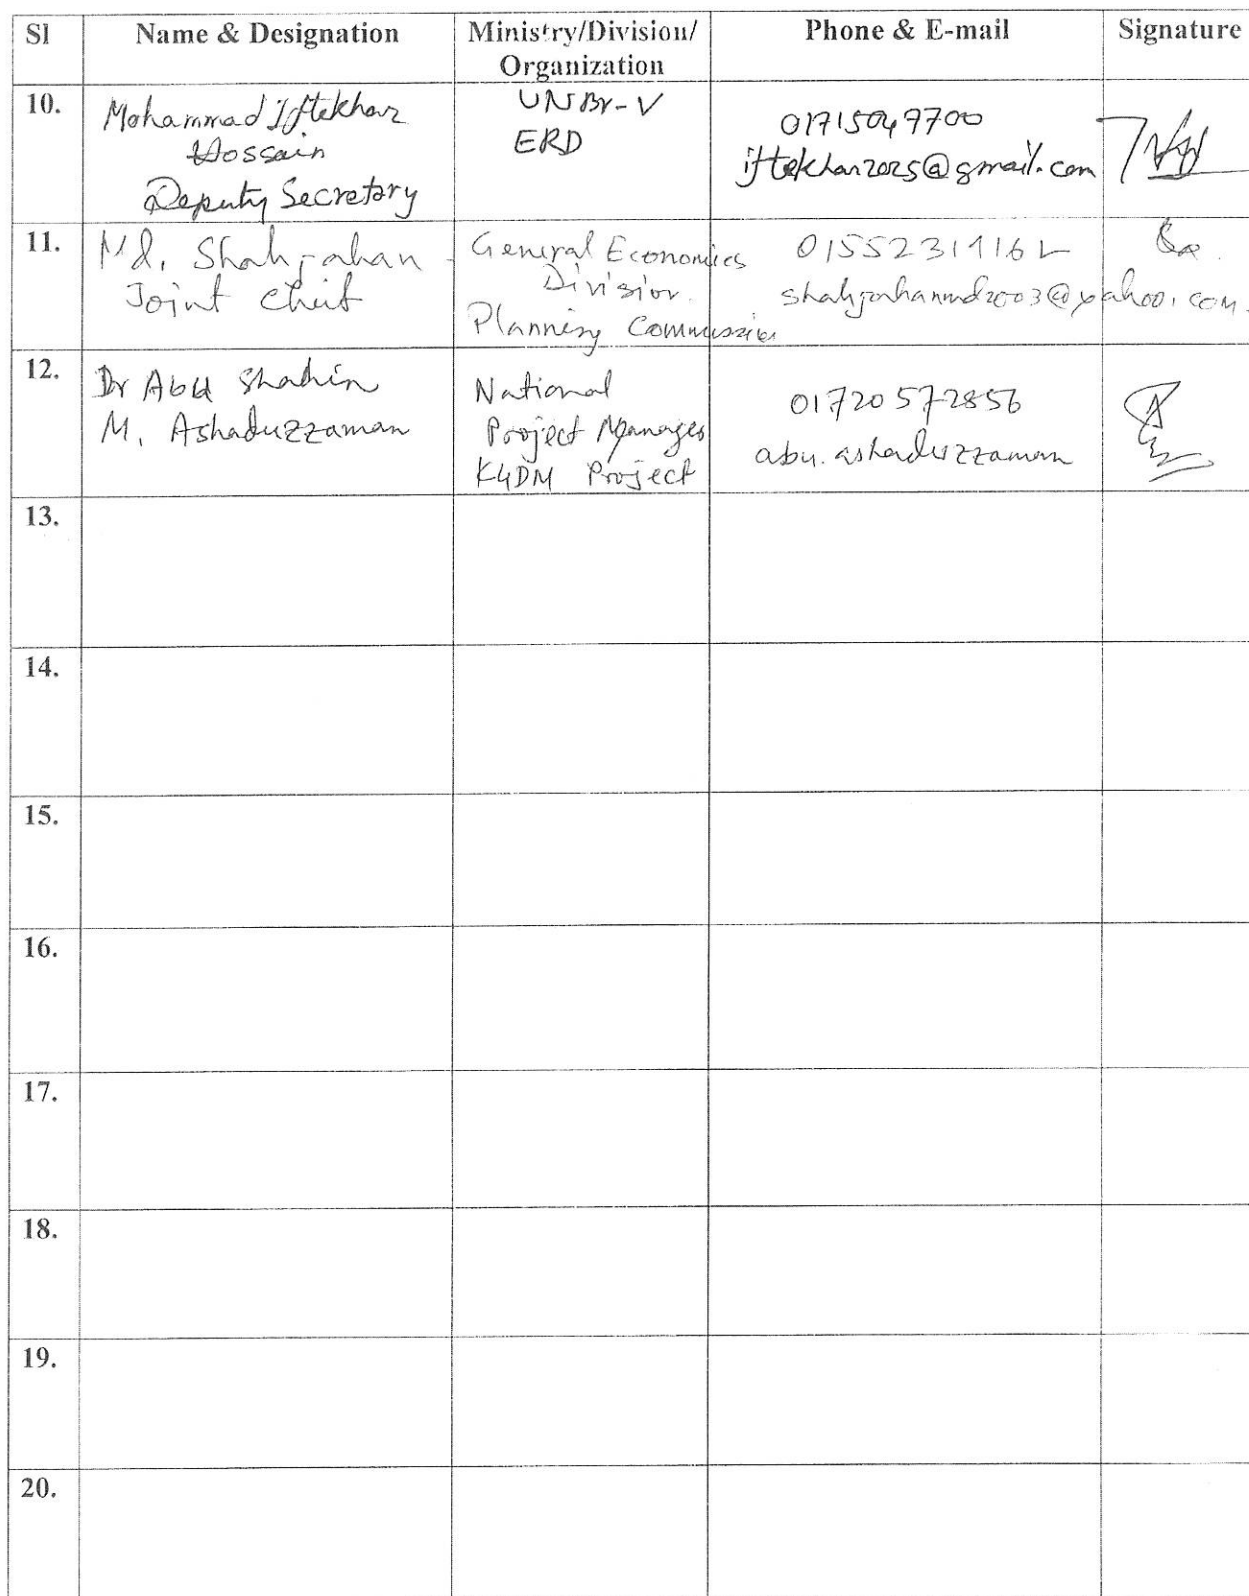 Sl Name & Designation Ministry/Division/ Organization Phone & E-mail Signature
10.
Mohammad Iftekhar
Hossain
Deputy Secretary
UN Br-V
ERD
01715049700
iftekhar2025@gmail.com
11.
Md. Shahjahan
Joint Chief
General Economics
Division
Planning Commission
shahjahanmd2003@yahoo.com.
12.
Dr Abu Shahin
M. Ashaduzzaman
National
Project Manager
K4DM Project
01720572856
abu.ashaduzzaman
13.
14.
15.
16.
17.
18.
19.
20.